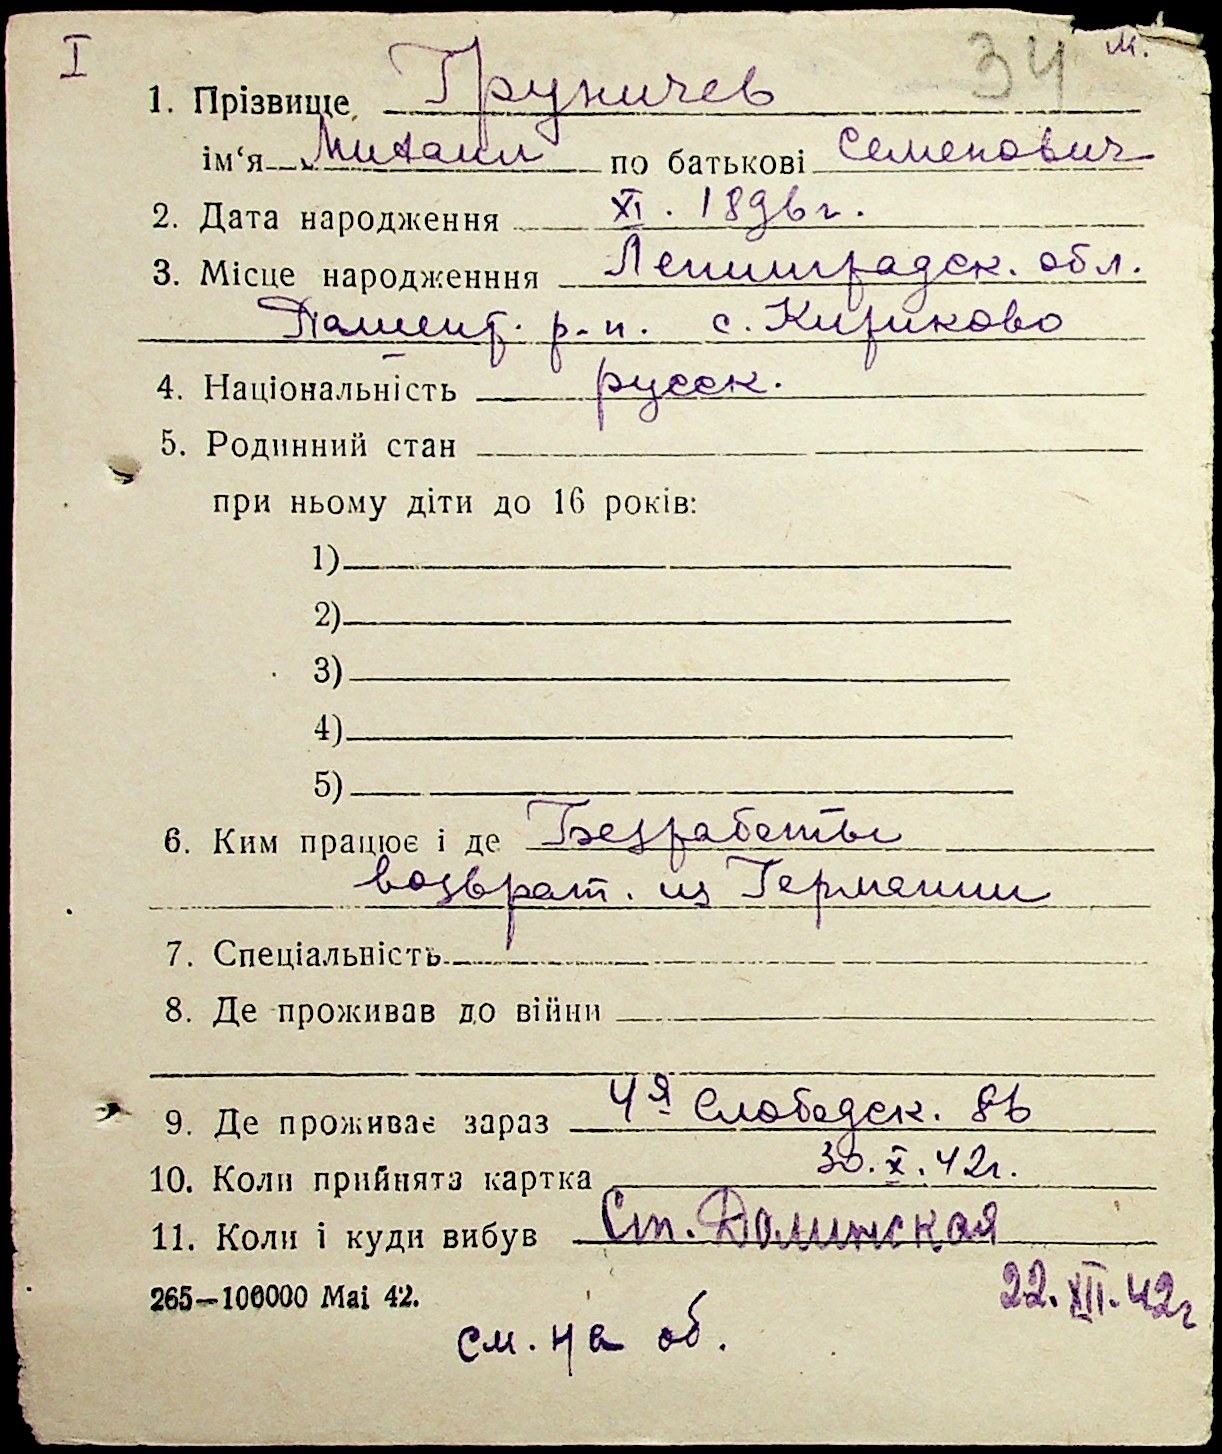 I
34 м.
1. Прізвище Груничев
ім‘я Михаил по батькові Семенович
2. Дата народження XI. 1896 г.
3. Місце народженння Ленинградск. обл.
р-н. с. Кириково
4. Національність русск.
5. Родинний стан
при ньому діти до 16 років:
1)
2)
3)
4)
5)
6. Ким працює і де Безработн
возврат. из Германии
7. Спеціальність
8. Де проживав до війни
9. Де проживає зараз 4я Слободск. 86
10. Коли прийнята картка 30.X.42г.
11. Коли і куди вибув Ст. Долинская
265—100000 Mai 42. 22.XII.42г
см. на об.